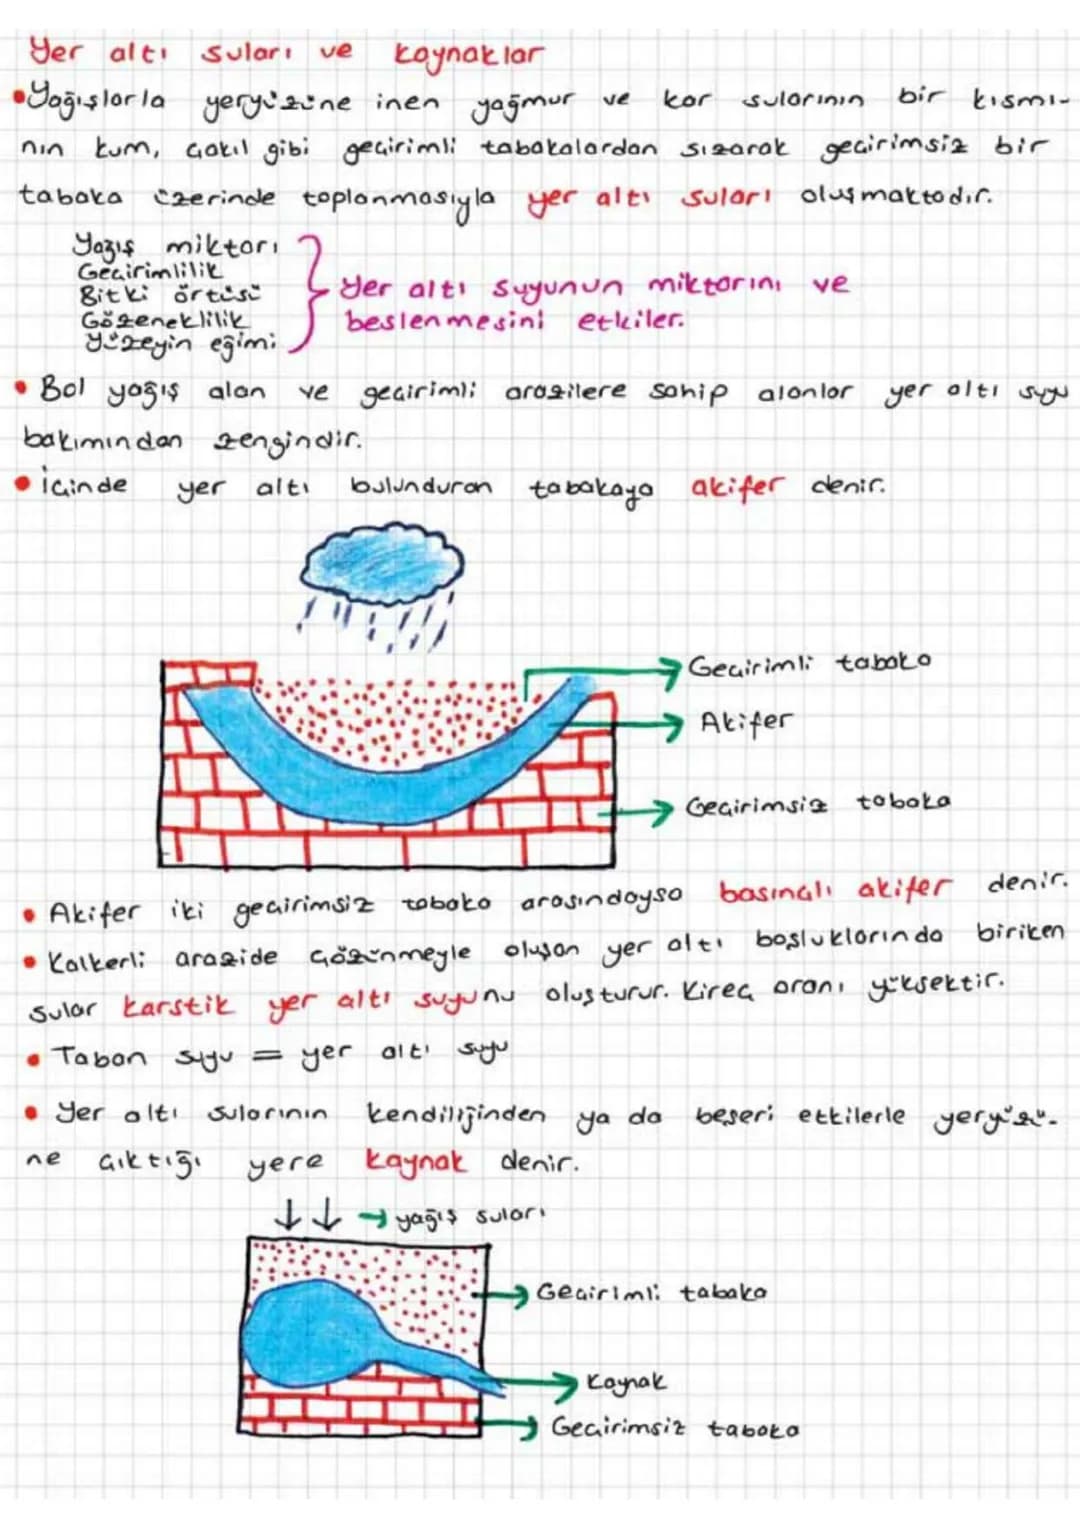 Yer altı suları ve kaynaklar
• Yağışlarla yeryüzüne inen yağmur ve kar sularının bir kısmı-
nın kum, çakıl gibi geçirimli tabakalardan sızarak geçirimsiz bir
tabaka üzerinde toplanmasıyla yer altı suları oluşmaktadır.
Yağış miktarı
Geçirimlilik
Bitki örtüsü
Gözeneklilik
Yüzeyin eğimi
Yer altı suyunun miktarını ve
beslenmesini etkiler.
• Bol yağış alan ve geçirimli arazilere sahip alanlar yer altı suyu
bakımından zengindir.
• İçinde yer altı bulunduran tabakaya akifer denir.
Geçirimli tabaka
Akifer
Geçirimsiz tabaka
• Akifer iki geçirimsiz tabaka arasındaysa basınçlı akifer denir.
• Kalkerli arazide çözünmeyle oluşan yer altı boşluklarında biriken
sular karstik yer altı suyunu oluşturur. Kireç oranı yüksektir.
• Taban suyu = yer altı suyu
• Yer altı sularının kendiliğinden ya da beşeri etkilerle yeryüzü-
ne çıktığı yere kaynak denir.
yağış suları
Geçirimli tabaka
Kaynak
Geçirimsiz tabaka